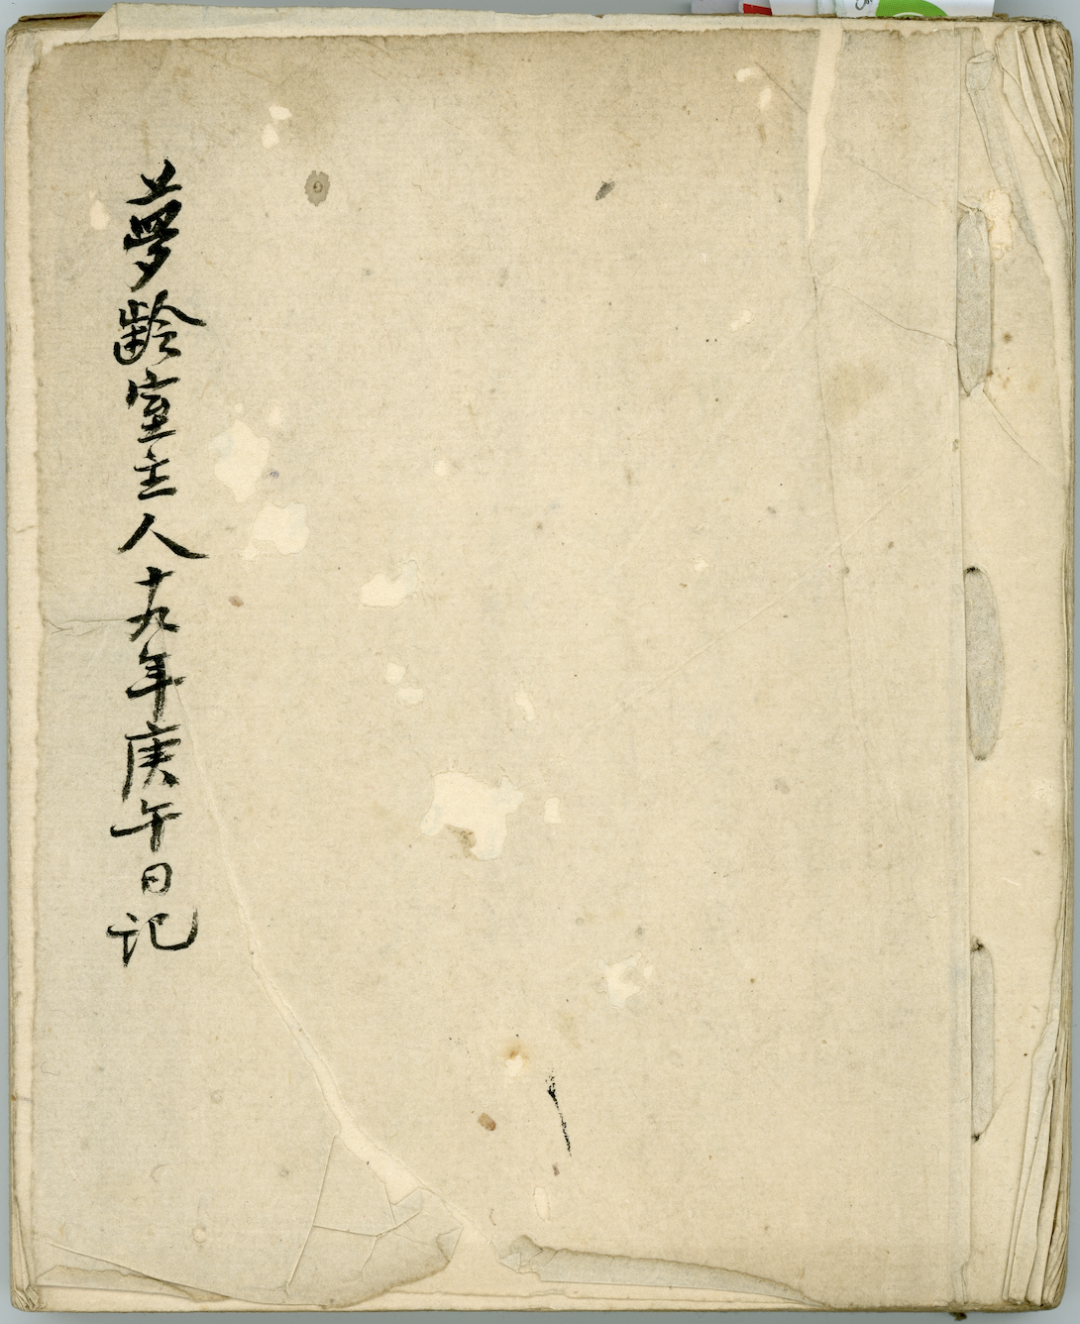 夢齡室主人十九年庚午日記